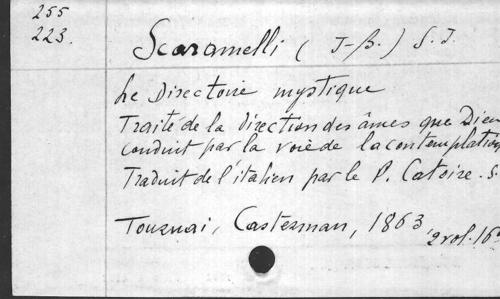 255
223.
Scaramelli ( J-B. ) S. J.
Le Directoire mystique
Traité de la direction des âmes que Dieu
conduit par la voie de la contemplation
Traduit de l'italien par le P. Catoire. S.
Tournai, Casterman, 1863, 2 vol. 16°